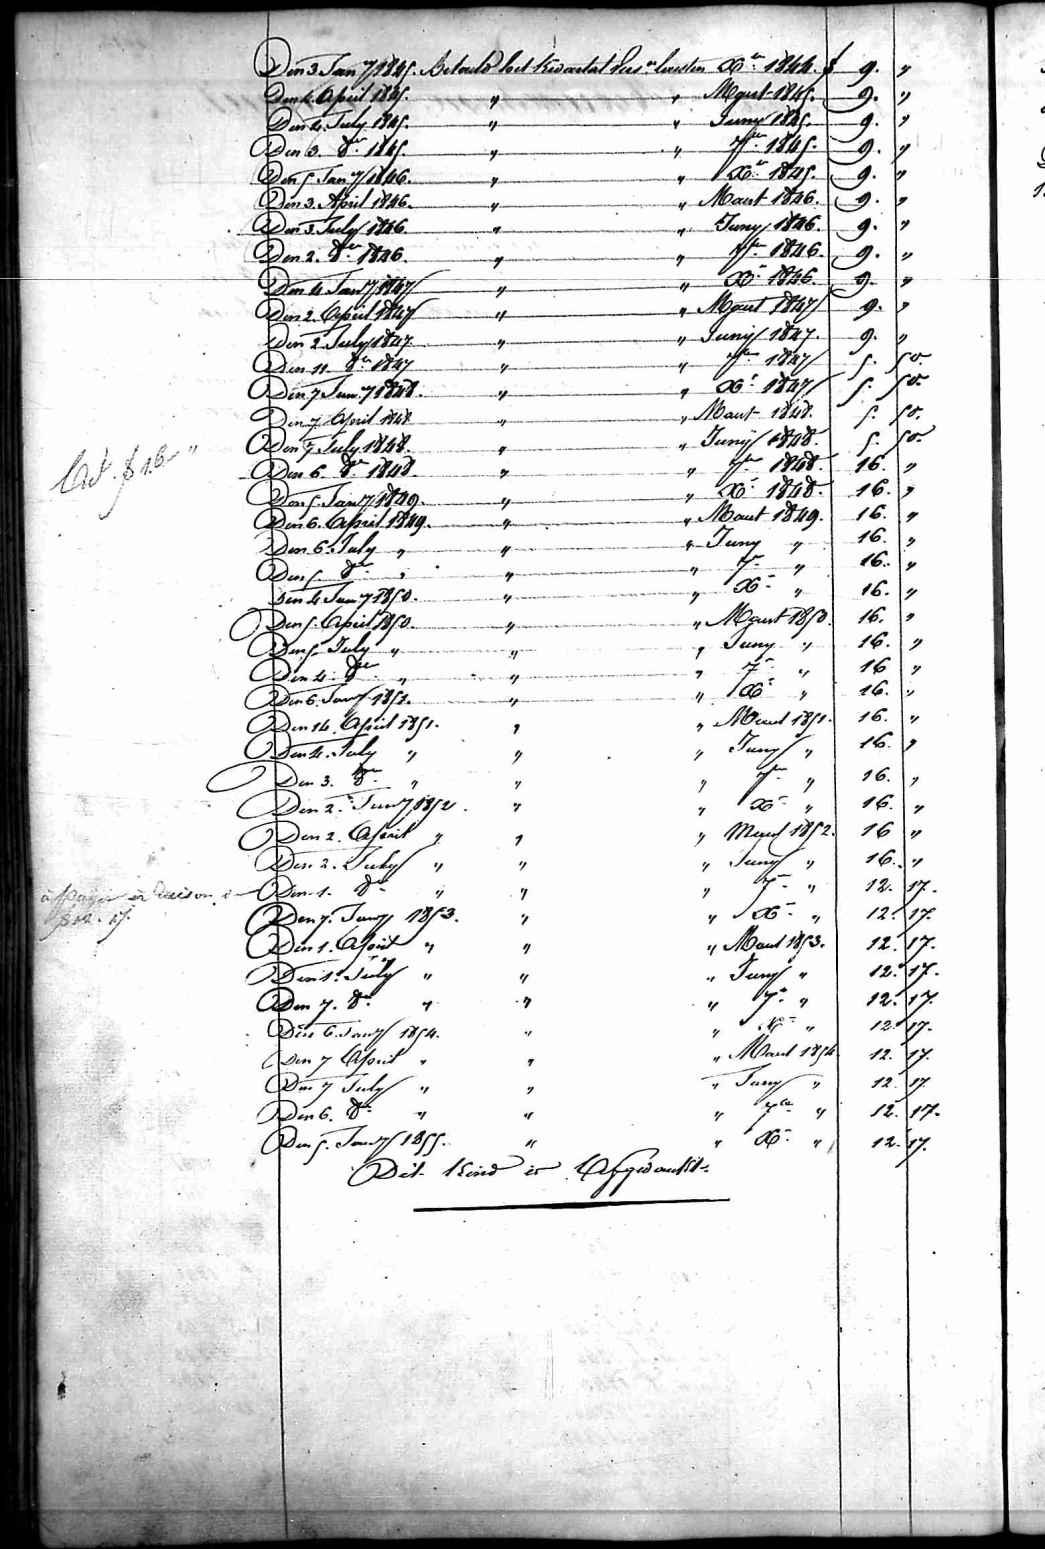 Den 3 Jany 1845. Betaald het Kwartal lesten Xr 1844. f 9. "
Den 4. April 1845. " " Maart 1845. 9. "
Den 4. July 1845. " " Juny 1845. 9. "
Den 3. 8r 1845 " " 7r 1845. 9. "
Den 5. Jany 1846. " " Xr 1845. 9. "
Den 3. April 1846. " " Maart 1846. 9. "
Den 3. July 1846. " " Juny 1846. 9. "
Den 2. 8er 1846. " " 7r 1846. 9. "
Den 4 Jany 1847 " " Xr 1846. 9. "
Den 2. April 1847 " " Maart 1847 9. "
Den 2 July 1847 " " Junij 1847. 9. "
Den 11. 8er 1847 " " 7r 1847 5. 50.
Den 7 Jany 1848. " " Xr 1847 5. 50.
Den 7 April 1848 " " Maart 1848. 5. 50.
Den 7 July 1848. " " Junij 1848. 5. 50.
f 16 "
Den 6. 8r 1848 " " 7r 1848. 16. "
Den 5. Jany 1849. " " Xr 1848. 16. "
Den 6. April 1849. " " Maart 1849. 16. "
Den 6. July " " " Juny " 16. "
Den 5. 8r " " " 7r " 16. "
Den 4 Jany 1850. " " Xr " 16. "
Den 5. April 1850. " " Maart 1850. 16. "
Den 5. July " " " Juny " 16. "
Den 4. 8er " " " 7r " 16 "
Den 6. Jany 1851. " " Xr " 16. "
Den 14. April 1851. " " Maart 1851. 16. "
Den 4. July " " " Juny " 16. "
Den 3. 8er " " " 7r " 16. "
Den 2. Jany 1852. " " Xr " 16. "
Den 2. April " " " Maart 1852. 16 "
Den 2. July " " " Juny " 16. "
à payer à raison de
f 12. 17.
Den 1. 8r " " " 7r " 12. 17.
Den 7. Jany 1853. " " Xr " 12. 17.
Den 1. April " " " Maart 1853. 12. 17.
Den 1. July " " " Juny " 12. 17.
Den 7. 8r " " " 7r " 12. 17.
Den 6. Jany 1854. " " Xr " 12. 17.
Den 7 April " " " Maart 1854. 12. 17.
Den 7 July " " " Juny " 12. 17.
Den 6. 8r " " " 7r " 12. 17.
Den 5. Jany 1855. " " Xr " 12. 17.
Dit Kind is Afgedankt.